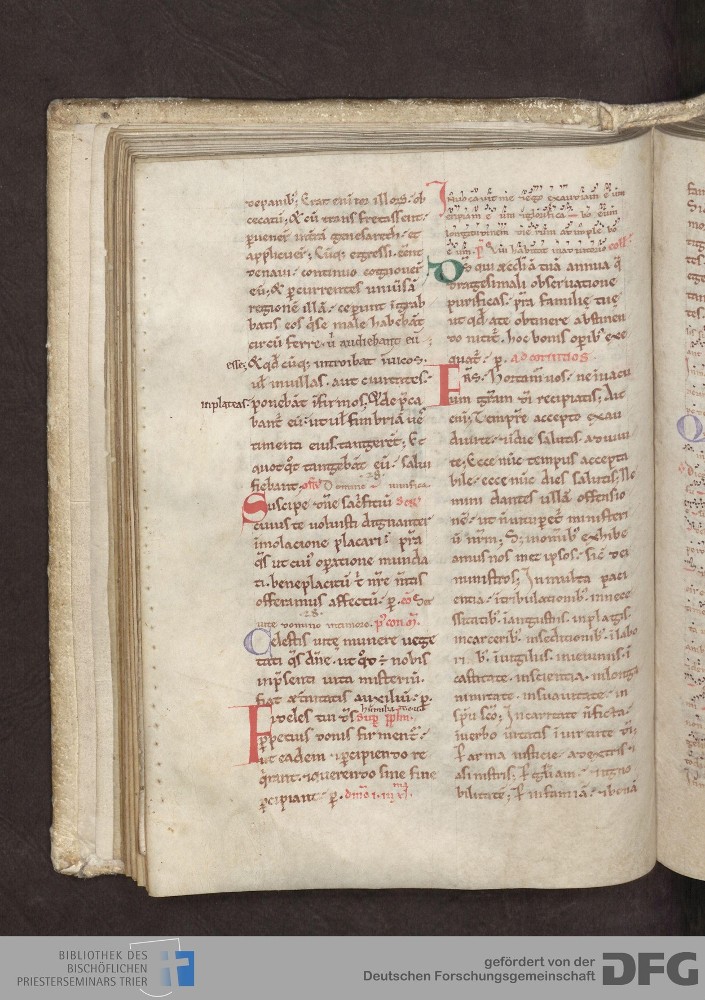 de panib; Erat eni cor illoꝝ ob
cecatū; & cū trans fretassent
puener̄ in trā genesareth et
applicuer̄; Cūq; egressi eēnt
de naui continuo cognouer̄
eū; & p currentes uniūsā
regionē illā ceperunt ī grab
batis eos q̄ se male habebāt
circū ferre ubi audiebant eū
esse; & qd cūq; introibat in uicos
ul in uillas aut ciuitates
in plateas ponebāt īfirmos, & dep̄ca
bant̄ eū ut ul fimbriā ues
timenti eius tangerēt; Et
quotqt tangebāt eū salui
fiebant off Domine uiuifica
Suscipe dn̄e sac̄ficiū Sec
cuius te uoluisti dignanter
īmolatione placari p̄sta
q̄s ut eius operatione munda
ti beneplacitū t̄ nr̄e mtis
offeramus affectū p. cō
uite domino in timore p̄ con
Celestis uite munere uege
tati q̄s dn̄e ut qd ÷ nobis
in p̄senti uita misteriū
fiat æt̄nitatis auxiliū p.
Fideles tui d̄s Sup̄ ppl̄m
ppetuo donis firment̄
ut eadem pcipiendo re
q̄rant & querendo sine fine
pcipiant p.
Inuocauit me & ego exaudiam eum
eripiam eum glorificabo eum
longitudinem dierum adimplebo
eum p Qui habitat in adiutorio coll
Ds qui æccl̄iā tuā annua q̄
dragesimali obseruatione
purificas p̄sta familie tue
ut qd a te obtinere abstinen
do nitit̄ hoc bonis opib; exe
quat̄ p. ad corintios
Frs Hortam̄ uos ne in uacu
um gr̄am di recipiatis; Ait
eni; Tempr̄e accepto exau
diui te & in die salutis adiuui
te; Ecce nūc tempus accepta
bile ecce nūc dies salutis; Ne
mini dantes ullā offensio
nē ut n̄ uitupet̄ ministeri
ū nr̄m; S; in omib; exhibe
amus nos met ipsos sic̄ dei
ministros; In multa paci
entia ī tribulationib; in nece
ssitatib; ī angustiis in plagis
in carcerib; in seditionib; ī labo
rib; ī uigiliis in ieiuniis ī
castitate in scientia in longa
nimitate in suauitate in
spu sco; In caritate n̄ ficta
in uerbo uitatis ī uirtute di;
P arma iusticie a dextris &
a sinistris; p gl̄iam & igno
bilitatē; p infamiā & bonā
BIBLIOTHEK DES
BISCHÖFLICHEN
PRIESTERSEMINARS TRIER
gefördert von der
Deutschen Forschungsgemeinschaft
DFG